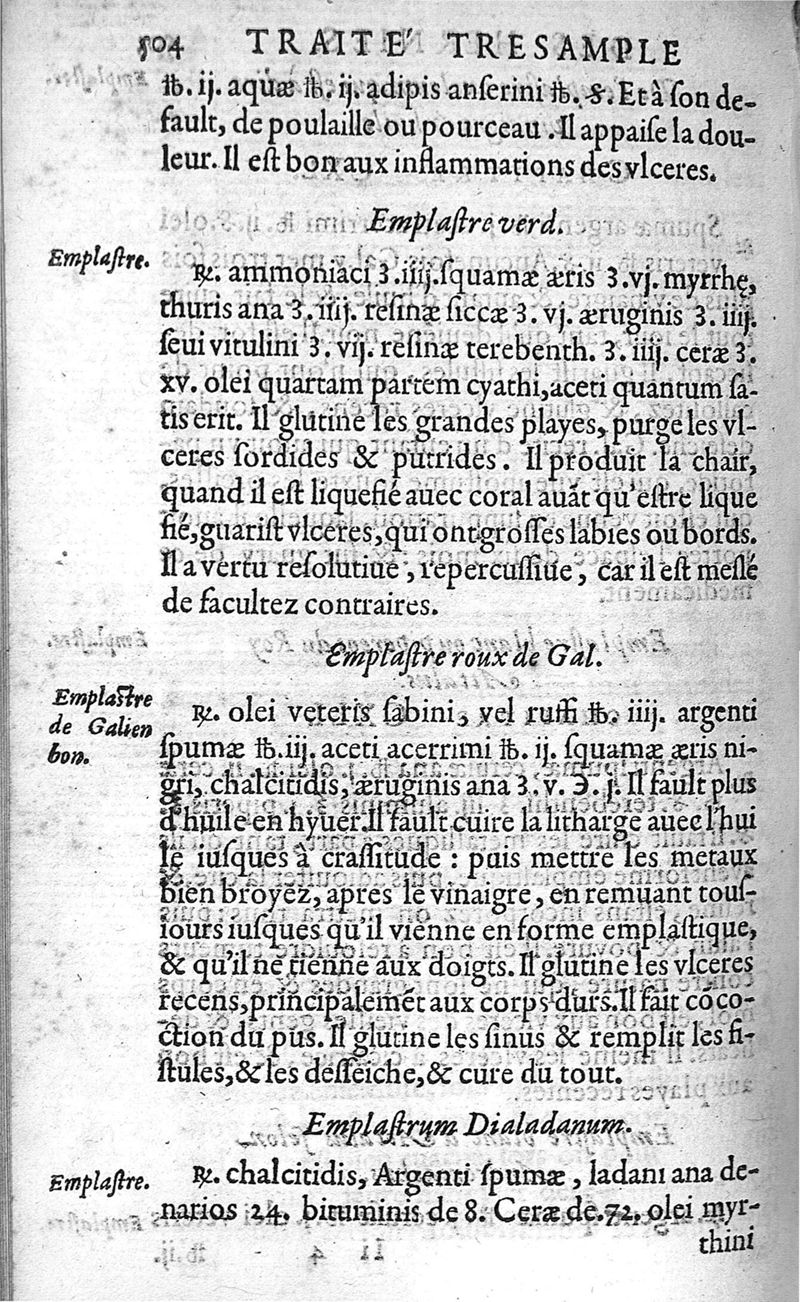 504 TRAITE' TRESAMPLE
℔. ij. aquæ ℔. ij. adipis anſerini ℔. ß. Et à ſon de-
fault, de poulaille ou pourceau. Il appaiſe la dou-
leur. Il eſt bon aux inflammations des vlceres.
Emplaſtre verd.
Emplaſtre.
℞. ammoniaci ʒ. iiij. ſquamæ æris ʒ. vj. myrrhę,
thuris ana ʒ. iiij. reſinæ ſiccæ ʒ. vj. æruginis ʒ. iiij.
ſeui vitulini ʒ. vij. reſinæ terebenth. ʒ. iiij. ceræ ʒ.
xv. olei quartam partem cyathi, aceti quantum ſa-
tis erit. Il glutine les grandes playes, purge les vl-
ceres ſordides & putrides. Il produit la chair,
quand il eſt liquefié auec coral auãt qu'eſtre lique
fié, guariſt vlceres, qui ont groſſes labies ou bords.
Il a vertu reſolutiue, repercuſſiue, car il eſt meſlé
de facultez contraires.
Emplaſtre roux de Gal.
Emplaſtre
de Galien
bon.
℞. olei veteris ſabini, vel ruffi ℔. iiij. argenti
ſpumæ ℔. iij. aceti acerrimi ℔. ij. ſquamæ æris ni-
gri, chalcitidis, æruginis ana ʒ. v. ℈. j. Il fault plus
d'huile en hyuer. Il fault cuire la litharge auec l'hui
le iuſques à craſſitude : puis mettre les metaux
bien broyez, apres le vinaigre, en remuant touſ-
iours iuſques qu'il vienne en forme emplaſtique,
& qu'il ne tienne aux doigts. Il glutine les vlceres
recens, principalemẽt aux corps durs. Il fait cõco-
ction du pus. Il glutine les ſinus & remplit les fi-
ſtules, & les deſſeiche, & cure du tout.
Emplaſtrum Dialadanum.
Emplaſtre.
℞. chalcitidis, Argenti ſpumæ, ladani ana de-
narios 24. bituminis de 8. Ceræ de. 72. olei myr-
thini